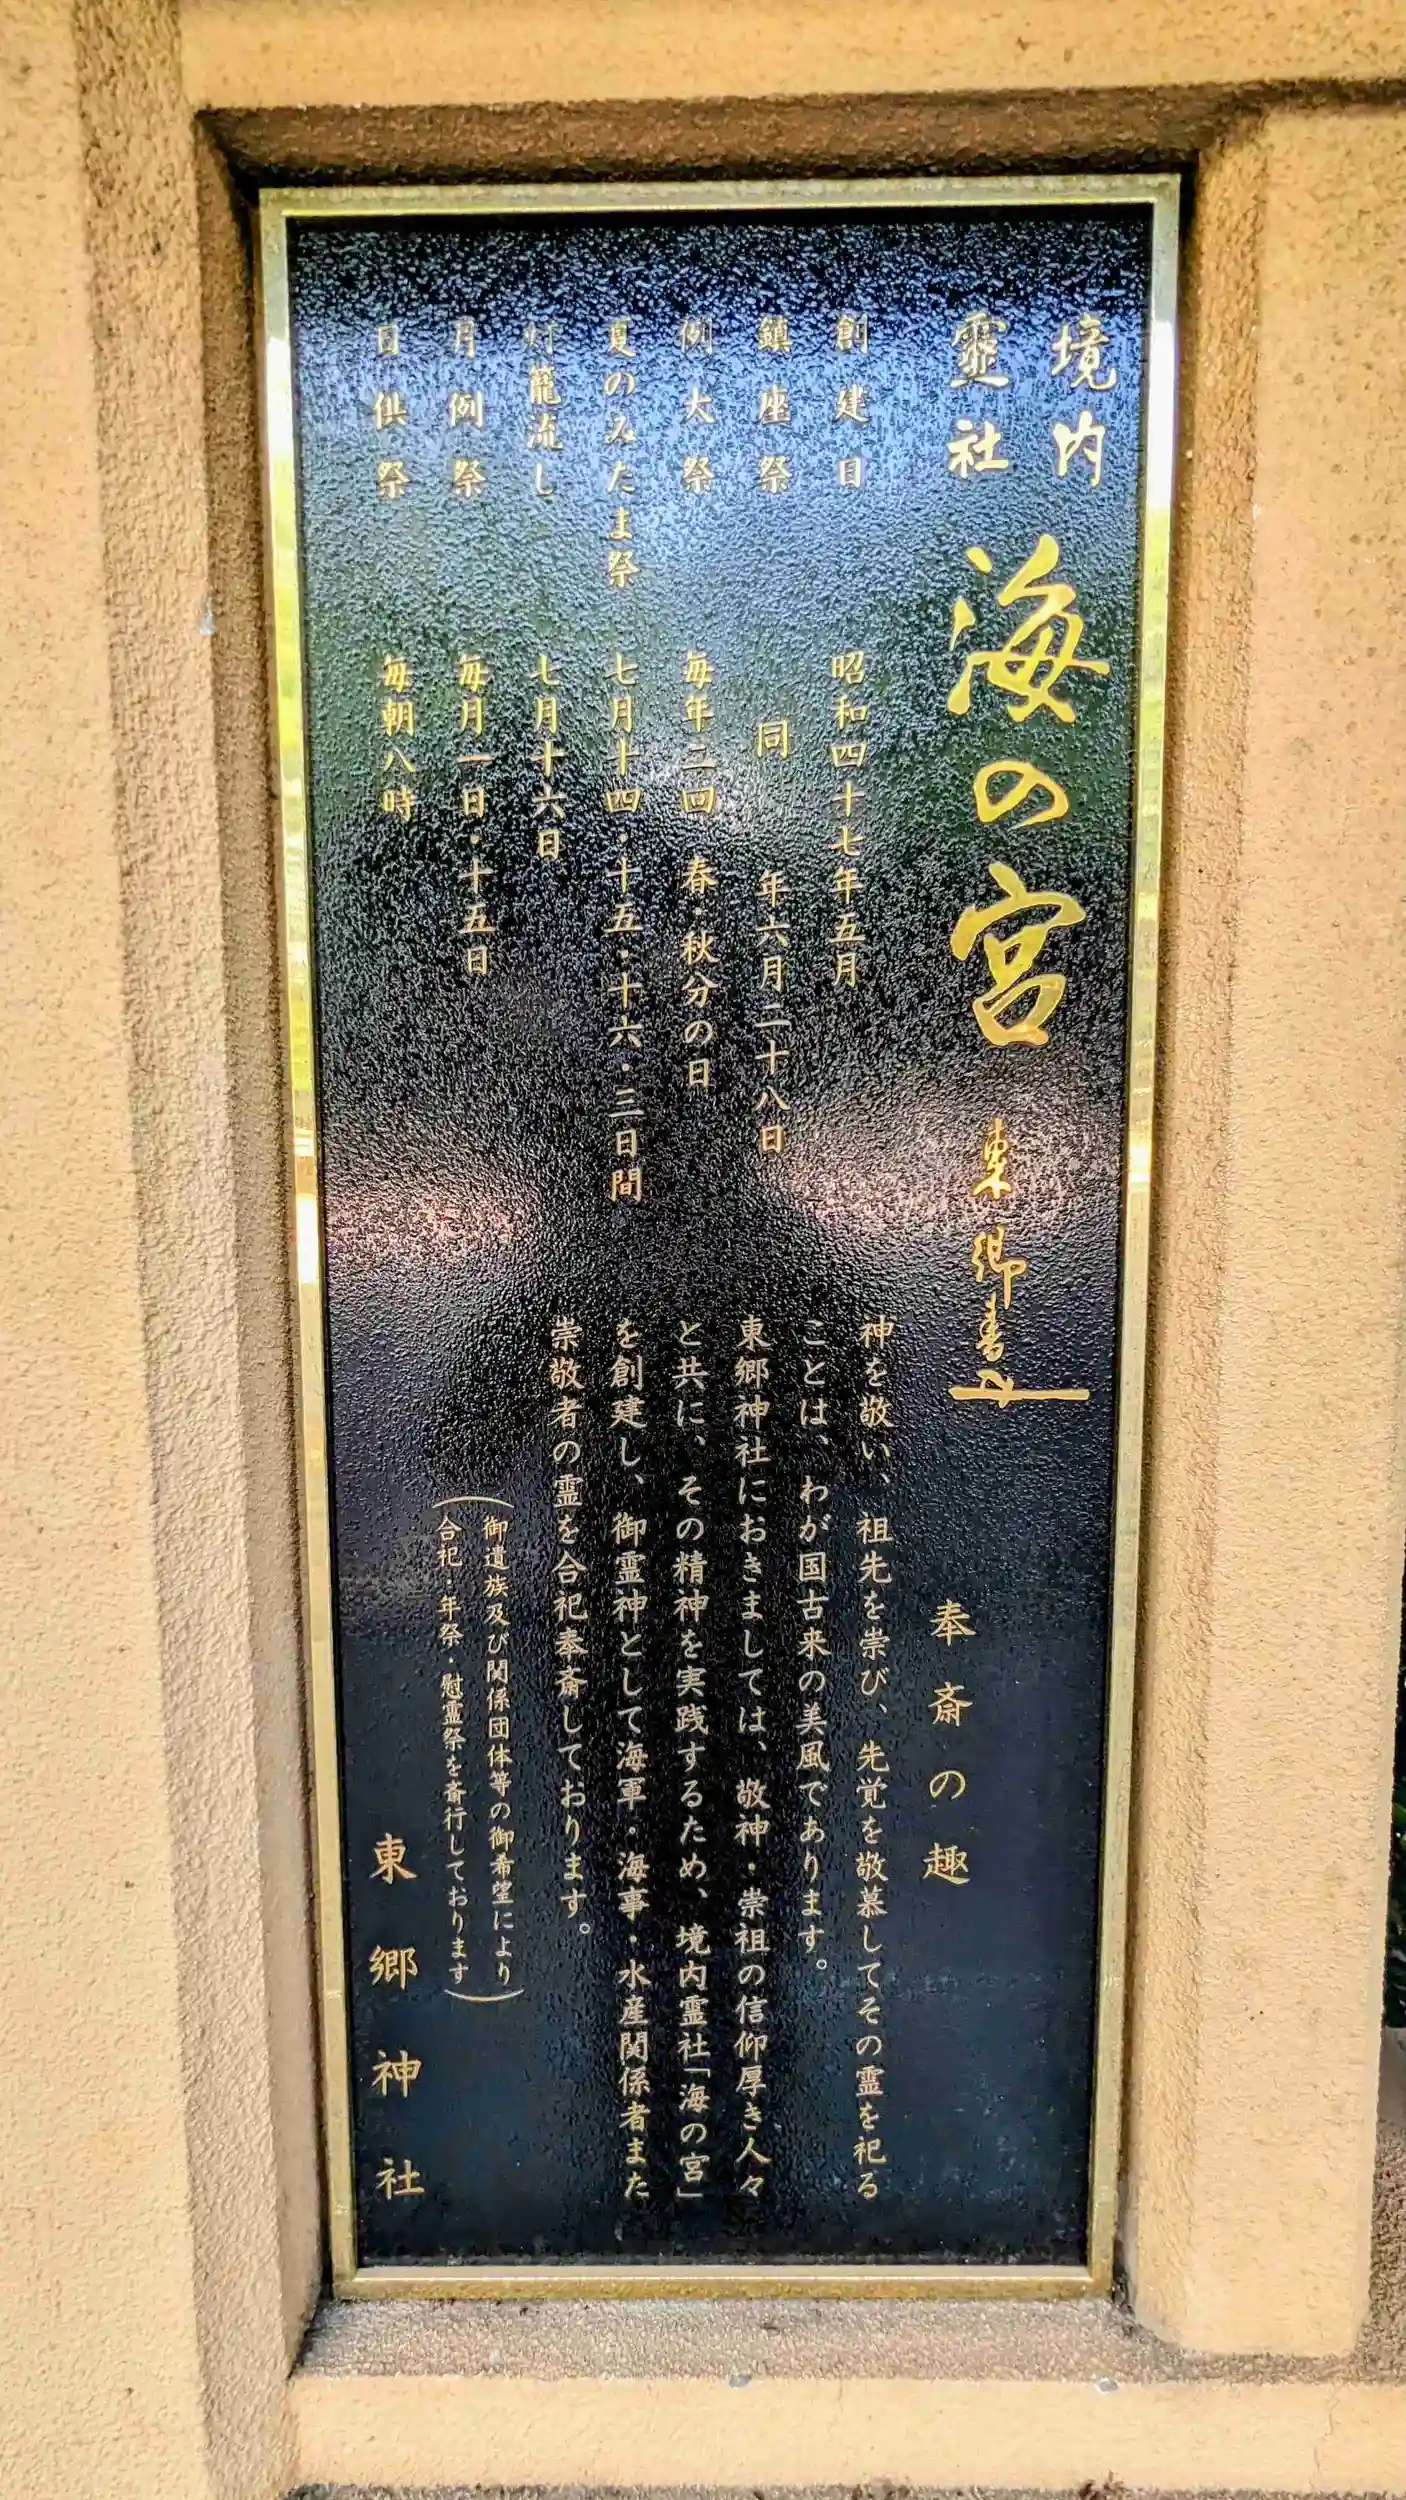 境内
霊社
海の宮
東郷書
創建日 昭和四十七年五月
鎮座祭 同年六月二十八日
例大祭 毎年二回 春・秋分の日
夏のみたま祭 七月十四・十五・十六・三日間
灯籠流し 七月十六日
月例祭 毎月一日・十五日
日供祭 毎朝八時
奉斎の趣
神を敬い、祖先を崇び、先覚を敬慕してその霊を祀る
ことは、わが国古来の美風であります。
東郷神社におきましては、敬神・崇祖の信仰厚き人々
と共に、その精神を実践するため、境内霊社「海の宮」
を創建し、御霊神として海軍・海事・水産関係者また
崇敬者の霊を合祀奉斎しております。
(御遺族及び関係団体等の御希望により
合祀・年祭・慰霊祭を斎行しております)
東郷神社